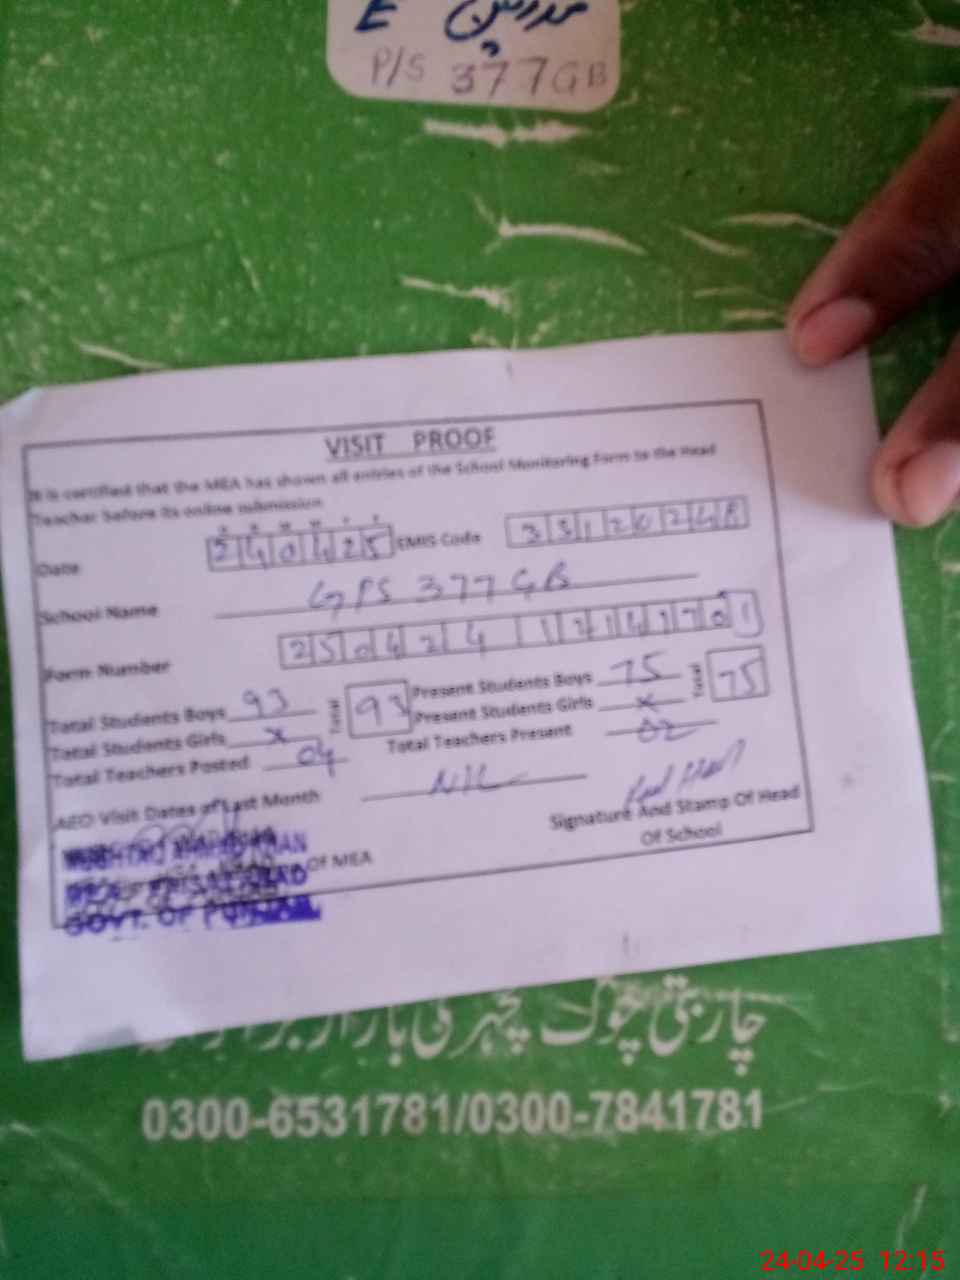 مدرسین E
P/S 377GB
VISIT PROOF
It is certified that the MEA has shown all entries of the School Monitoring Form to the Head
Teacher before its online submission
Date 240425 EMIS Code 33120248
School Name GPS 377 GB
Form Number
Total Students Boys 93 Total 93 Present Students Boys 75 Total 75
Total Students Girls x Present Students Girls x
Total Teachers Posted 04 Total Teachers Present 02
AEO Visit Dates of Last Month NIL
Signature And Stamp Of Head
Of School
OF MEA
GOVT. OF PUNJAB
چار بتی چوک کچہری بازار
0300-6531781/0300-7841781
24-04-25 12:15